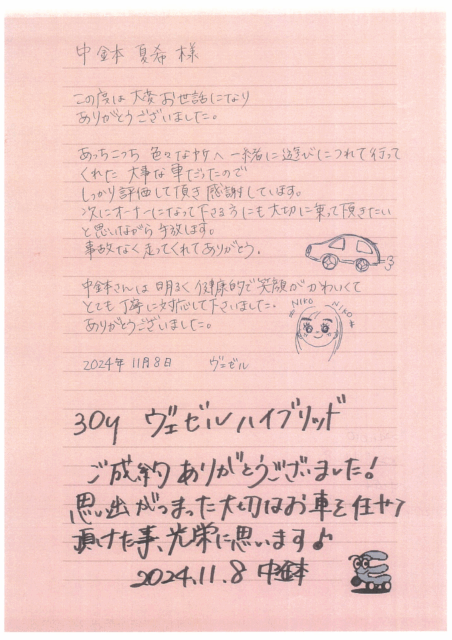 中鉢 夏希 様
この度は 大変 お世話になり
ありがとうございました。
あっちこっち 色々な所へ 一緒に 遊びにつれて行って
くれた 大事な 車だったので
しっかり評価して頂き 感謝しています。
次にオーナーになって下さる方にも 大切に 乗って頂きたい
と思いながら 手放します。
事故なく走ってくれてありがとう。
中鉢さんは 明るく 健康的で笑顔がかわいくて
とても 丁寧に対応して下さいました。
ありがとうございました。
NIKO NIKO
2024年 11月8日 ヴェゼル
30y ヴェゼルハイブリッド
ご成約 ありがとうございました!
思い出がつまった大切なお車を任せて
頂けた事、光栄に思います♪
2024.11.8 中鉢